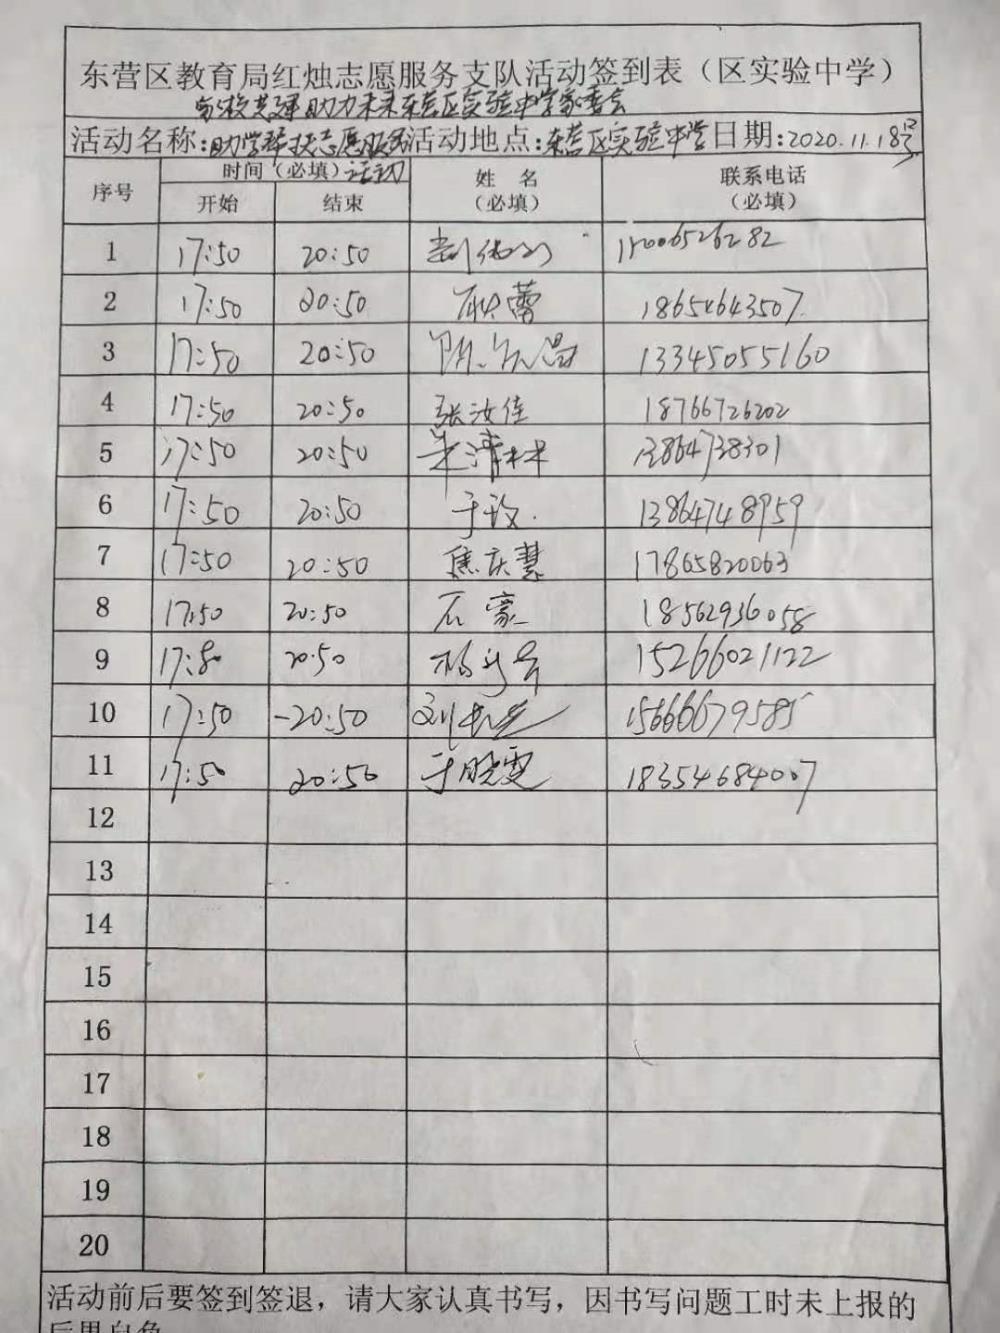 东营区教育局红烛志愿服务支队活动签到表（区实验中学）
家校共建助力未来东营区实验中学家委会
活动名称：助学帮扶志愿服务活动地点：东营区实验中学日期：2020.11.18号
序号 时间（必填）活动 姓名（必填） 联系电话（必填）
开始 结束
1 17:50 20:50 15006526282
2 17:50 20:50 耿蕾 18654643507
3 17:50 20:50 13345055160
4 17:50 20:50 张汝佳 18766726202
5 17:50 20:50 朱清林 13864738301
6 17:50 20:50 于玫 13864748959
7 17:50 20:50 焦庆慧 17865820063
8 17:50 20:50 石豪 18562936058
9 17:50 20:50 15266021122
10 17:50 -20:50 15666679585
11 17:50 20:50 于晓雯 18354684007
12
13
14
15
16
17
18
19
20
活动前后要签到签退，请大家认真书写，因书写问题工时未上报的
后果自负